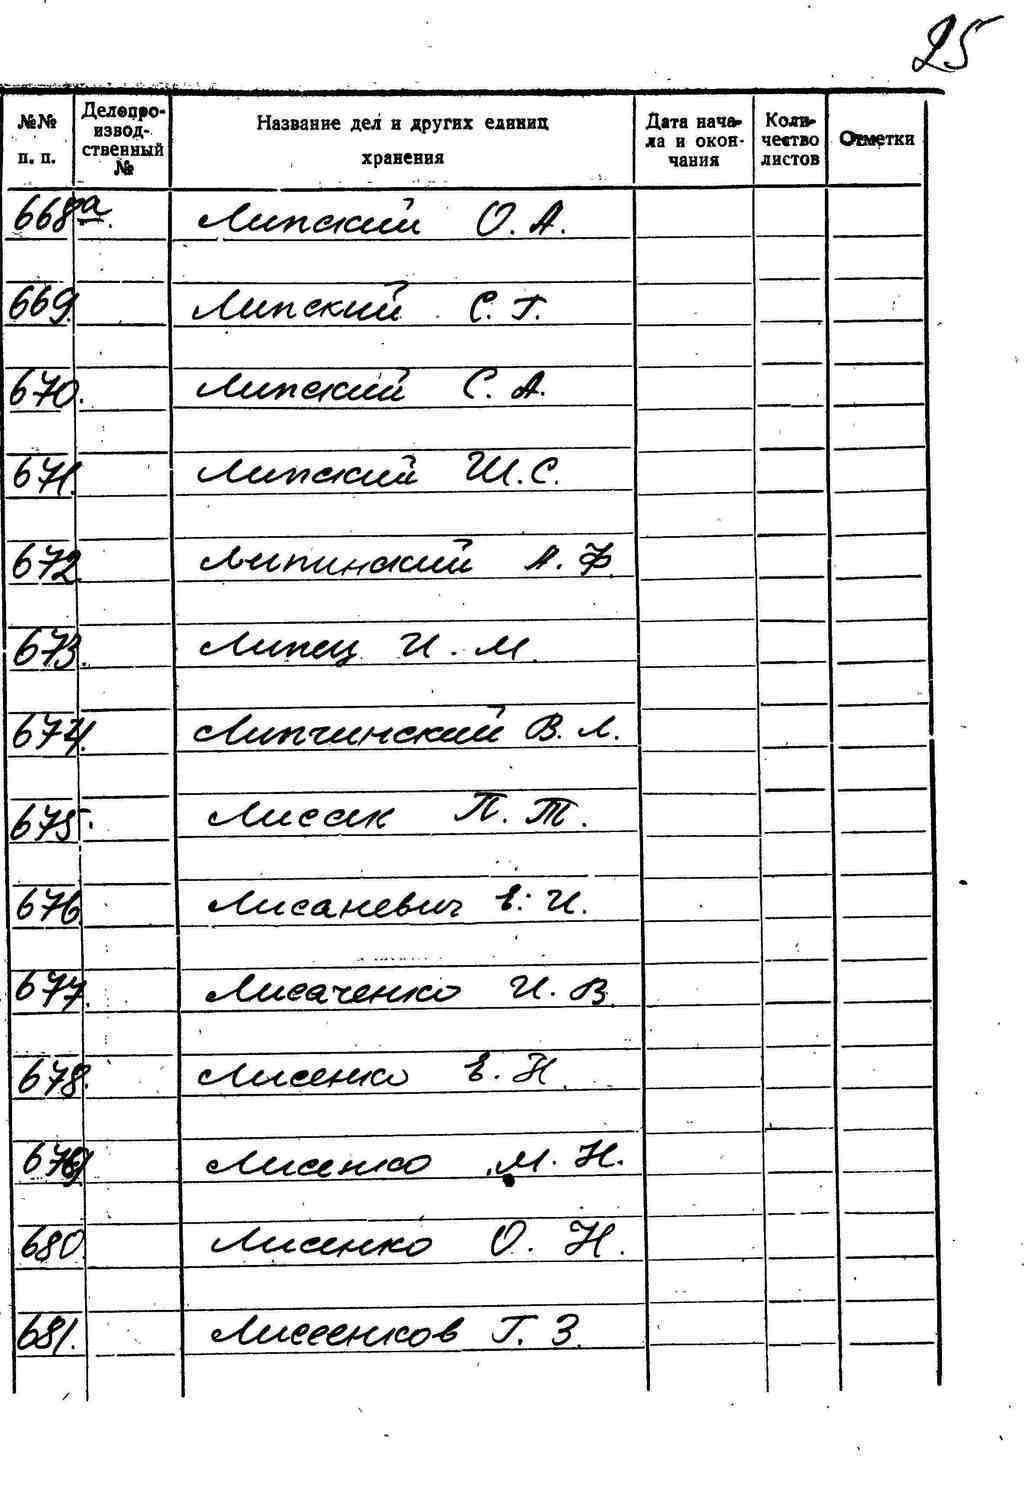 25
№№ п. п. Делопроизводственный № Название дел и других единиц хранения Дата начала и окончания Количество листов Отметки
668а. Липский О. А.
669. Липский С. Г.
670. Липский С. А.
671. Липский Ш. С.
672. Липинский А. Ф.
673. Липец И. М.
674. Липчинский В. Л.
675. Лисак П. Т.
676 Лисаневич Е. И.
677. Лисаченко И. В.
678. Лисенко Е. Н.
679 Лисенко М. Н.
680. Лисенко О. Н.
681. Лисеенков Г. З.